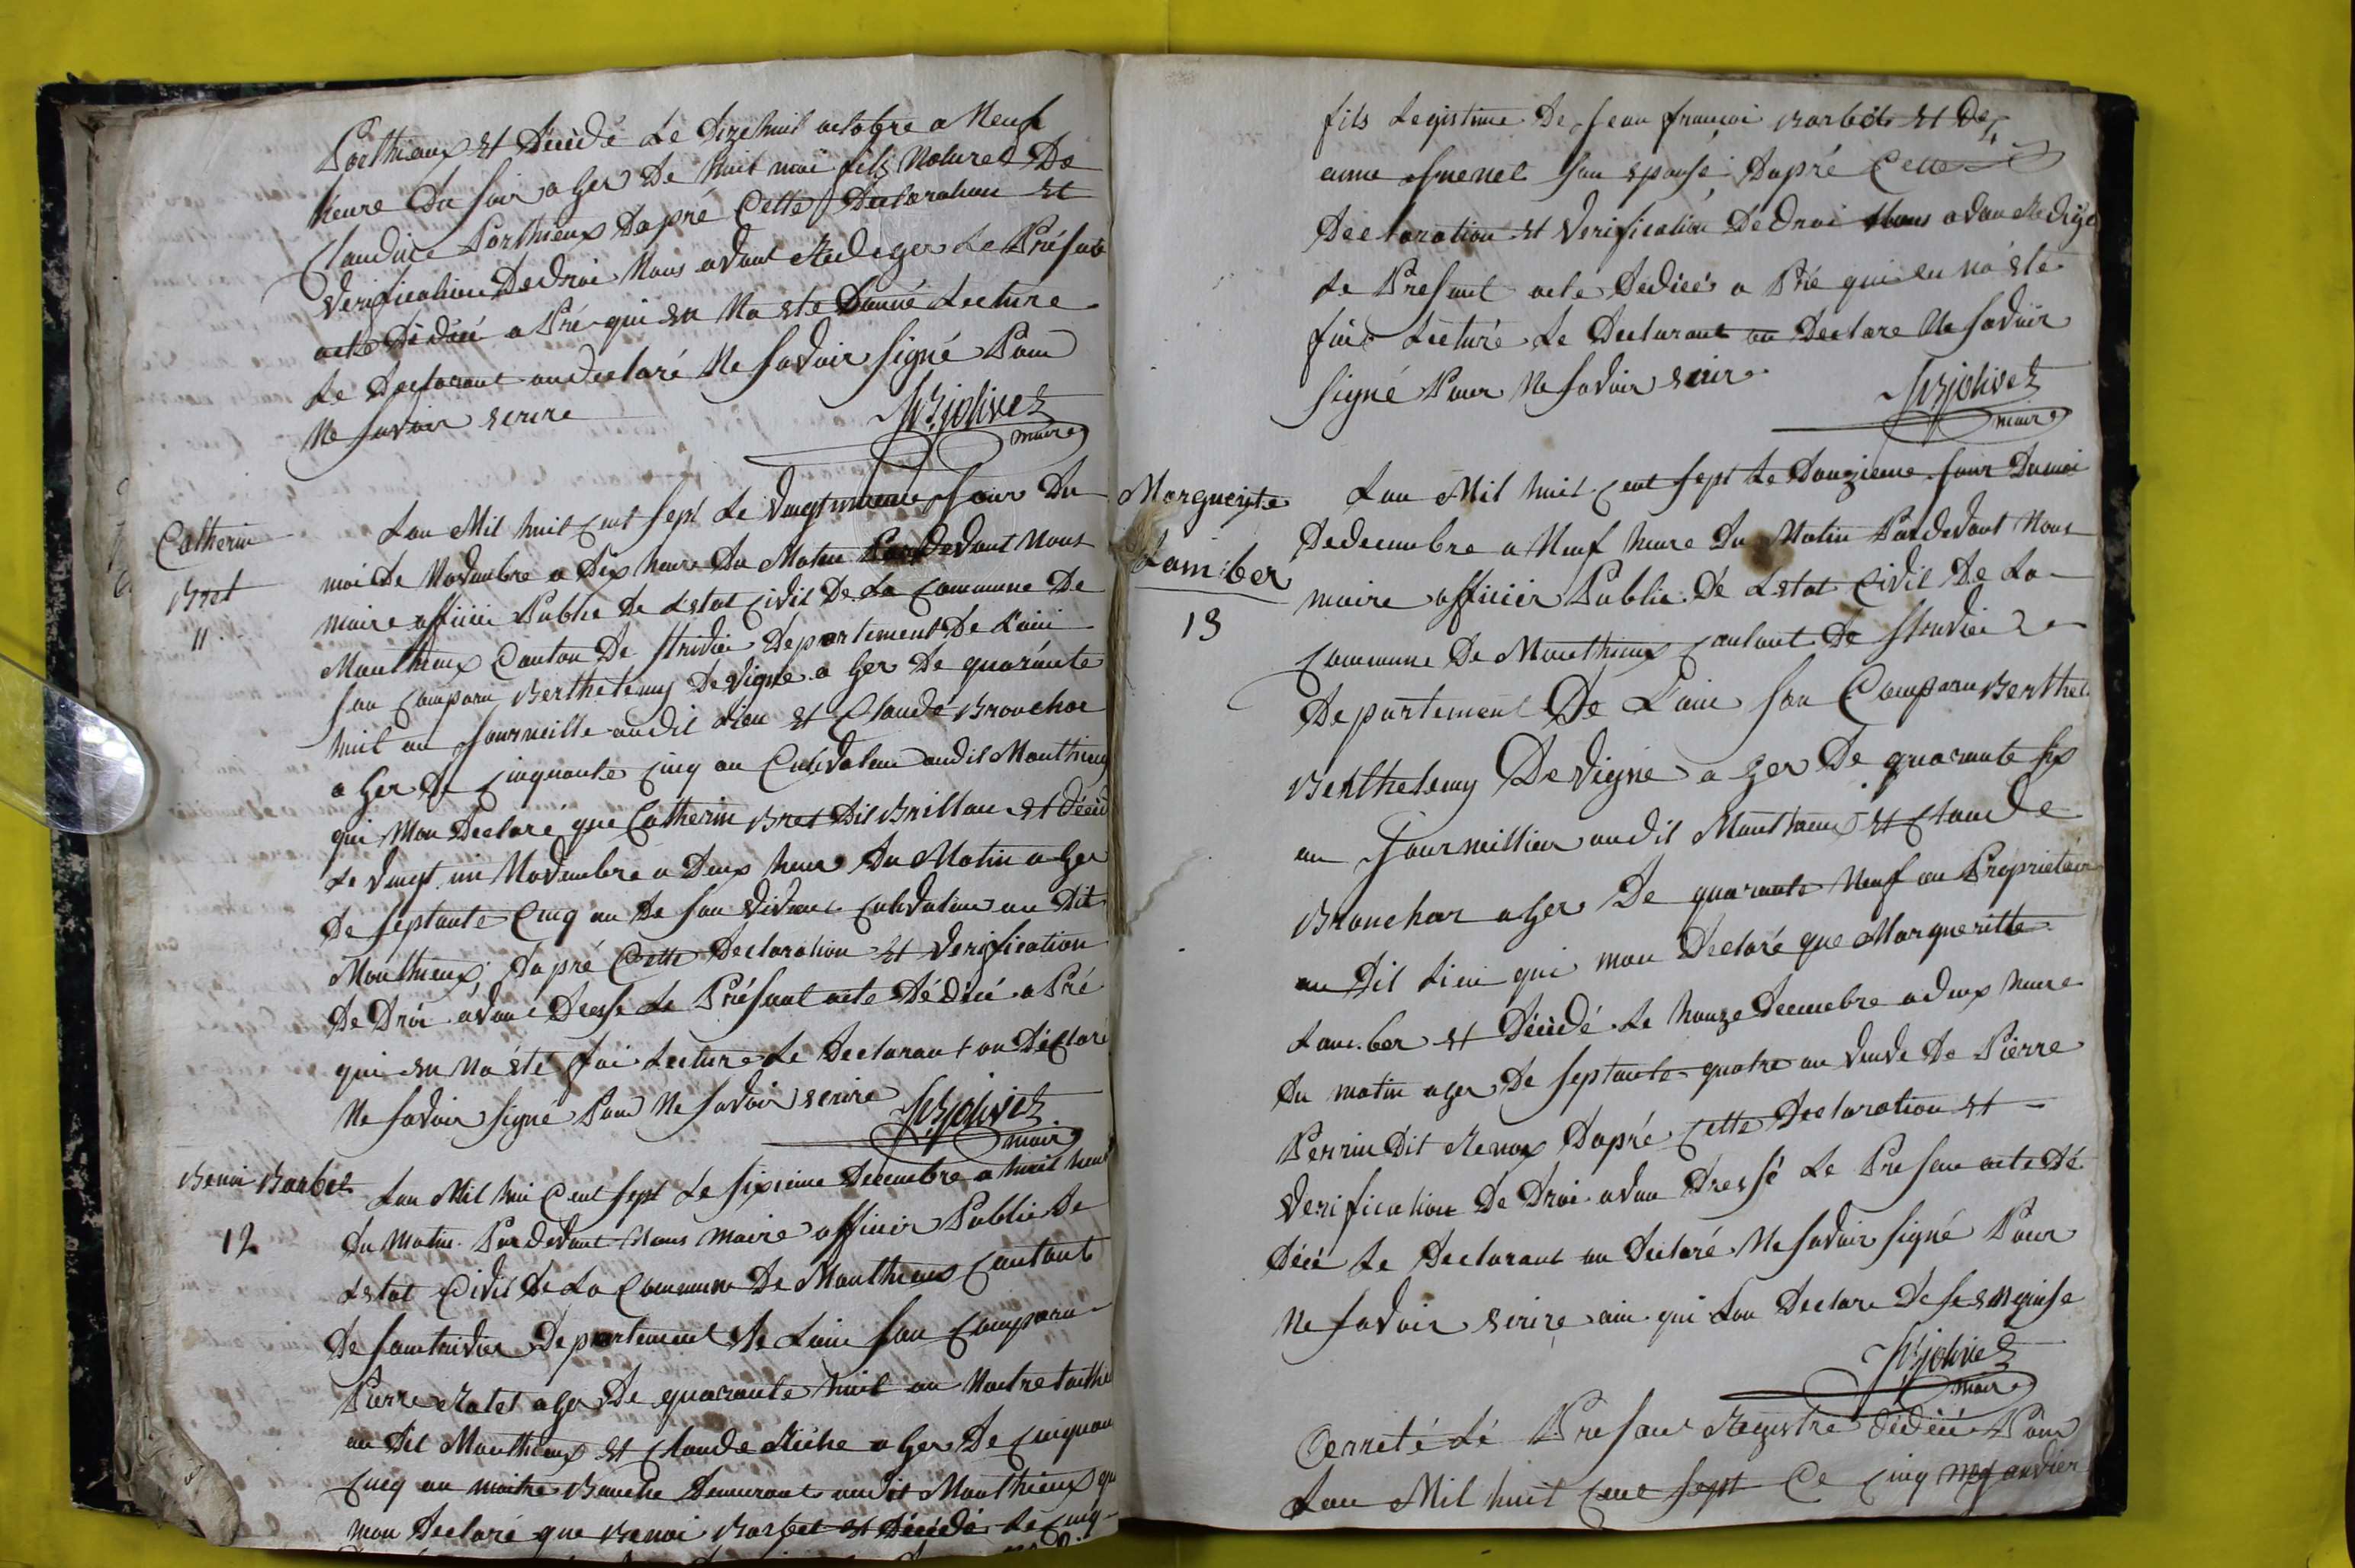 Porthieux et décédé Le dixehuit octobre a Neuf
heure du soir a Ger De huit moi fils Naturel De
Claudine Porthieux Dapré Cette Declaration et
Verification De Droi Nous avont Rediger Le Présent
acte Dédicé a Pré qui en Na eté Donné Lecture
Le Declarant on declaré Ne Savoir Signé Pour
Ne Savoir ecrire
jolivet
maire
Catherin
Bret
11
Lan Mil huit Cent Sept Le Vingt unieme Jour Du
moi De Novembre a Dix heure Du Matin Pardevant Nous
maire officier Public De Lstat Civil De La Commune De
Monthieux Canton De Strivier Departement De Lain
Son Comparu Berthelemy Devigne a Ger De quarante
huit an Journeille audit Lieu et Claude Brouchar
a Ger De Cinquante Cinq an Cultivateur audit Monthieux
qui Mon Declaré que Catherin Bret Dit Brillan et décéd
Le Vingt un Novembre a Deux heure Du Matin a Ger
De Septante Cinq an De Son Vivant Cultivateur au Dit
Monthieux Dapré Cette Declaration et Verification
De Droi avon Dressé Le Présant acte Dédicé a Pré
qui en Na eté fai Lecture Le Declarant on Déclaré
Ne Savoir Signé Pour Ne Savoir ecrire
jolivet
maire
Benoi Barbet
12
Lan Mil hui Cent Sept Le Sixieme Decembre a huit heur
Du Matin Pardevant Nous maire officier Public De
Lstat Civil De La Commune De Monthieux Cantont
De Saintrivier Departement De Lain Son Comparu
Pierre Ratet a Ger De quarante huit an
au Dit Monthieux et Claude Riche a Ger De Cinquan
Cinq an maitre Demeurant audit Monthieux qu
mon Declaré que Benoi Barbet et décédé Le Cinq
fils Legistime De Jean françoi Barbet et De
anne Guenet Son epouse Dapré Cette
Declaration et Verification De Droi Nous avon Redigé
Le Presant acte Dédicé a Pré qui en Na eté
fai Lecturé Le Declarant on Declare Ne Savoir
Signé Pour Ne Savoir ecrir
jolivet
maire
Marguerite
Lamber
13
Lan Mil huit Cent Sept Le Douzieme Jour Du moi
De decembre a Neuf heure Du Matin Pardevant Nous
maire officier Public De Lstat Civil De La
Commune De Monthieux Cantont De Strivier
Departement De Lain Son Comparu Berthel
Berthelemy Devigne a Ger De quarante Six
an Journeillier audit Monthieux et Claude
Brouchar a Ger De quarante Neuf an Proprietair
au Dit Lieu qui mon Declaré que Margueritte
Lamber et décédé Le honze Decembre a deux heure
Du matin a Ger De Septante quatre an Veuve De Pierre
Perrin Dit Renox Dapré Cette Declaration et
Verification De Droi avon Dressé Le Presen acte Dé
Dicé Le Declarant on declaré Ne Savoir Signé Pour
Ne Savoir ecrire qui Lon Declare
jolivet
maire
Cerreté Lé Presant Registre Dédicé Pour
Lan Mil huit Cent Sept Ce Cinq janvier